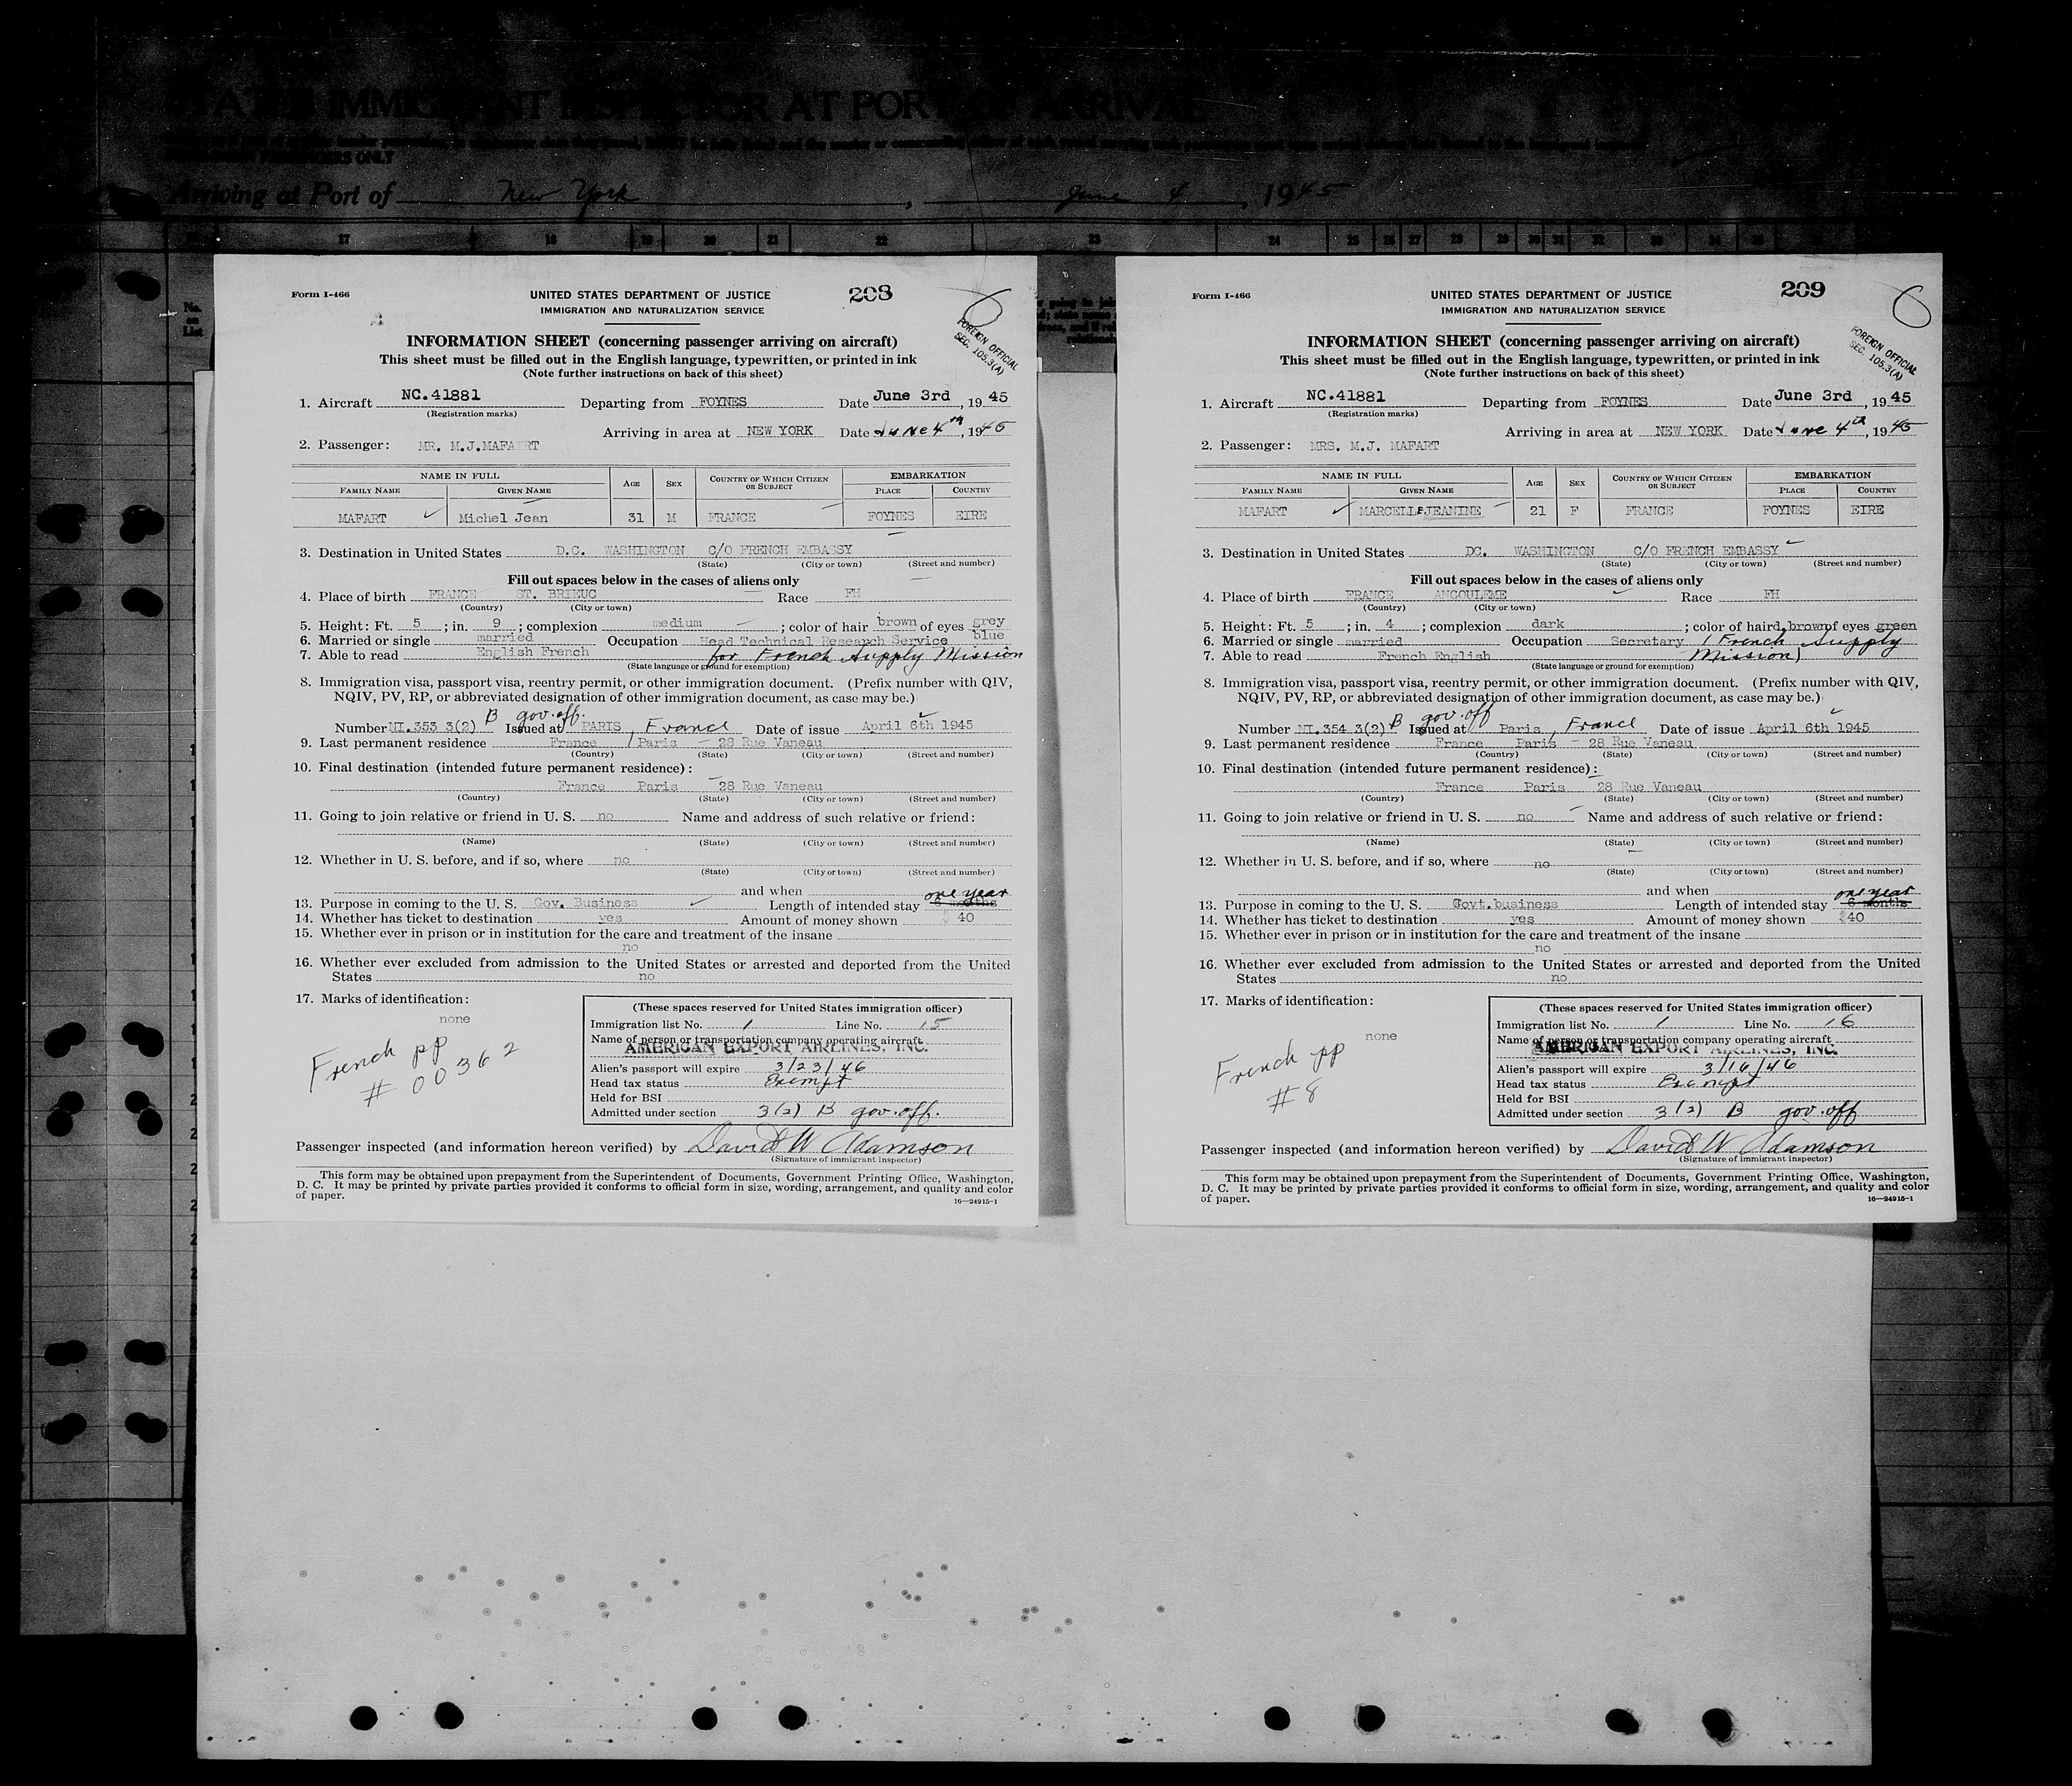 STATES IMMIGRANT INSPECTOR AT PORT OF ARRIVAL
Arriving at Port of New York, June 4, 1945
17 18 19 20 21 22 23 24 25 26 27 28 29 30 31 32 33 34 35
No. on List
Form I-466
UNITED STATES DEPARTMENT OF JUSTICE
208
IMMIGRATION AND NATURALIZATION SERVICE
FOREIGN OFFICIAL
SEC. 105.3(A)
INFORMATION SHEET (concerning passenger arriving on aircraft)
This sheet must be filled out in the English language, typewritten, or printed in ink
(Note further instructions on back of this sheet)
1. Aircraft NC.41881 Departing from FOYNES Date June 3rd, 1945
(Registration marks)
Arriving in area at NEW YORK Date June 4th, 1945
2. Passenger: MR. M.J.MAFART
NAME IN FULL AGE SEX COUNTRY OF WHICH CITIZEN OR SUBJECT EMBARKATION
FAMILY NAME GIVEN NAME PLACE COUNTRY
MAFART Michel Jean 31 M FRANCE FOYNES EIRE
3. Destination in United States D.C. WASHINGTON C/O FRENCH EMBASSY
(State) (City or town) (Street and number)
Fill out spaces below in the cases of aliens only
4. Place of birth FRANCE ST. BRIEUC Race FH
(Country) (City or town)
5. Height: Ft. 5; in. 9; complexion medium; color of hair brown of eyes grey blue
6. Married or single married Occupation Head Technical Research Service
7. Able to read English French for French Supply Mission
(State language or ground for exemption)
8. Immigration visa, passport visa, reentry permit, or other immigration document. (Prefix number with QIV,
NQIV, PV, RP, or abbreviated designation of other immigration document, as case may be.)
Number NI.353 3(2) B gov.off. Issued at PARIS, France Date of issue April 6th 1945
9. Last permanent residence France Paris - 28 Rue Vaneau
(Country) (State) (City or town) (Street and number)
10. Final destination (intended future permanent residence):
France Paris 28 Rue Vaneau
(Country) (State) (City or town) (Street and number)
11. Going to join relative or friend in U. S. no Name and address of such relative or friend:
(Name) (State) (City or town) (Street and number)
12. Whether in U. S. before, and if so, where no
(State) (City or town) (Street and number)
and when
one year
13. Purpose in coming to the U. S. Gov. Business Length of intended stay 6 months
14. Whether has ticket to destination yes Amount of money shown $ 40
15. Whether ever in prison or in institution for the care and treatment of the insane
no
16. Whether ever excluded from admission to the United States or arrested and deported from the United
States no
17. Marks of identification:
none
French pp
# 00362
(These spaces reserved for United States immigration officer)
Immigration list No. 1 Line No. 15
Name of person or transportation company operating aircraft
AMERICAN EXPORT AIRLINES, INC.
Alien's passport will expire 3/23/46
Head tax status Exempt
Held for BSI
Admitted under section 3(2) B gov.off.
Passenger inspected (and information hereon verified) by David W Adamson
(Signature of immigrant inspector)
This form may be obtained upon prepayment from the Superintendent of Documents, Government Printing Office, Washington,
D. C. It may be printed by private parties provided it conforms to official form in size, wording, arrangement, and quality and color
of paper.
16—24915-1
Form I-466
UNITED STATES DEPARTMENT OF JUSTICE
209
IMMIGRATION AND NATURALIZATION SERVICE
FOREIGN OFFICIAL
SEC. 105.3(A)
INFORMATION SHEET (concerning passenger arriving on aircraft)
This sheet must be filled out in the English language, typewritten, or printed in ink
(Note further instructions on back of this sheet)
1. Aircraft NC.41881 Departing from FOYNES Date June 3rd, 1945
(Registration marks)
Arriving in area at NEW YORK Date June 4th, 1945
2. Passenger: MRS. M.J. MAFART
NAME IN FULL AGE SEX COUNTRY OF WHICH CITIZEN OR SUBJECT EMBARKATION
FAMILY NAME GIVEN NAME PLACE COUNTRY
MAFART MARCELLE JEANINE 21 F FRANCE FOYNES EIRE
3. Destination in United States DC. WASHINGTON C/O FRENCH EMBASSY
(State) (City or town) (Street and number)
Fill out spaces below in the cases of aliens only
4. Place of birth FRANCE ANGOULEME Race FH
(Country) (City or town)
5. Height: Ft. 5; in. 4; complexion dark; color of hair d. brown of eyes green
6. Married or single married Occupation Secretary (French Supply
7. Able to read French English Mission)
(State language or ground for exemption)
8. Immigration visa, passport visa, reentry permit, or other immigration document. (Prefix number with QIV,
NQIV, PV, RP, or abbreviated designation of other immigration document, as case may be.)
Number NI.354 3(2) B gov.off Issued at Paris, France Date of issue April 6th 1945
9. Last permanent residence France Paris - 28 Rue Vaneau
(Country) (State) (City or town) (Street and number)
10. Final destination (intended future permanent residence):
France Paris 28 Rue Vaneau
(Country) (State) (City or town) (Street and number)
11. Going to join relative or friend in U. S. no Name and address of such relative or friend:
(Name) (State) (City or town) (Street and number)
12. Whether in U. S. before, and if so, where no
(State) (City or town) (Street and number)
and when
one year
13. Purpose in coming to the U. S. Govt.business Length of intended stay 6 months
14. Whether has ticket to destination yes Amount of money shown $40
15. Whether ever in prison or in institution for the care and treatment of the insane
no
16. Whether ever excluded from admission to the United States or arrested and deported from the United
States no
17. Marks of identification:
none
French pp
# 8
(These spaces reserved for United States immigration officer)
Immigration list No. 1 Line No. 16
Name of person or transportation company operating aircraft
AMERICAN EXPORT AIRLINES, INC.
Alien's passport will expire 3/16/46
Head tax status Exempt
Held for BSI
Admitted under section 3(2) B gov.off
Passenger inspected (and information hereon verified) by David W Adamson
(Signature of immigrant inspector)
This form may be obtained upon prepayment from the Superintendent of Documents, Government Printing Office, Washington,
D. C. It may be printed by private parties provided it conforms to official form in size, wording, arrangement, and quality and color
of paper.
16—24915-1